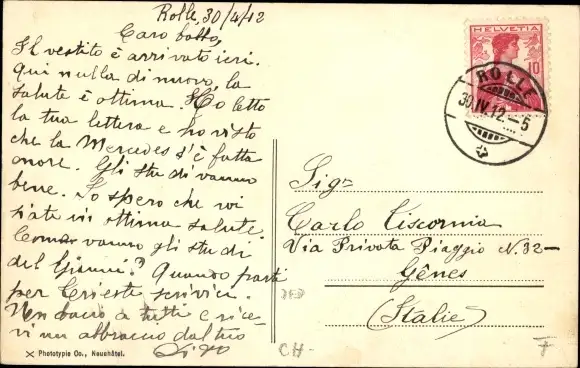 Rolle, 30/4/12
Caro babbo,
Il vestito è arrivato ieri.
Qui nulla di nuovo, la
salute è ottima. Ho letto
la tua lettera e ho visto
che la Mercedes s'è fatta
onore. Gli studi vanno
bene. Io spero che voi
siate in ottima salute.
Come vanno gli studi
del Gianni? Quando parti
per Trieste scrivici.
Un bacio a tutti e rice-
vi un abbraccio dal tuo
HELVETIA
10
ROLLE
30.IV.12.-5
Sigr
Carlo Ciscornia
Via Privata Piaggio N. 32-
Gênes
(Italie)
CH-
F
Phototypie Co., Neuchâtel.